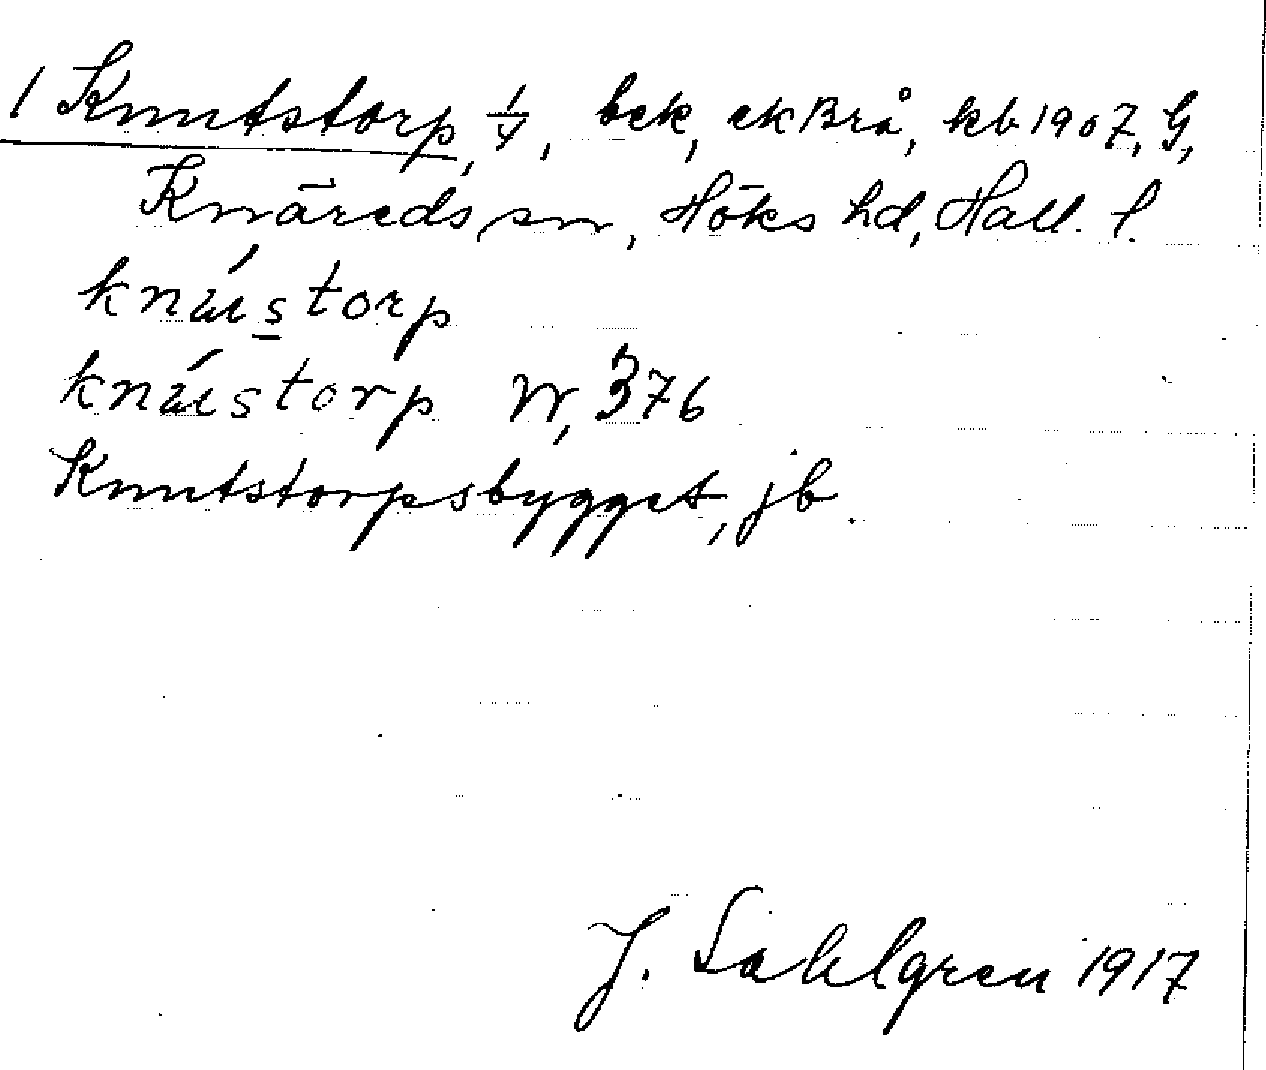 1 Knutstorp, 1/4, bek, ekBrå, kb 1907, G,
Knäreds sn, Höks hd, Hall. l.
knúistorp
knúistorp W, 376
Knutstorpsbygget, jb.
J. Sahlgren 1917